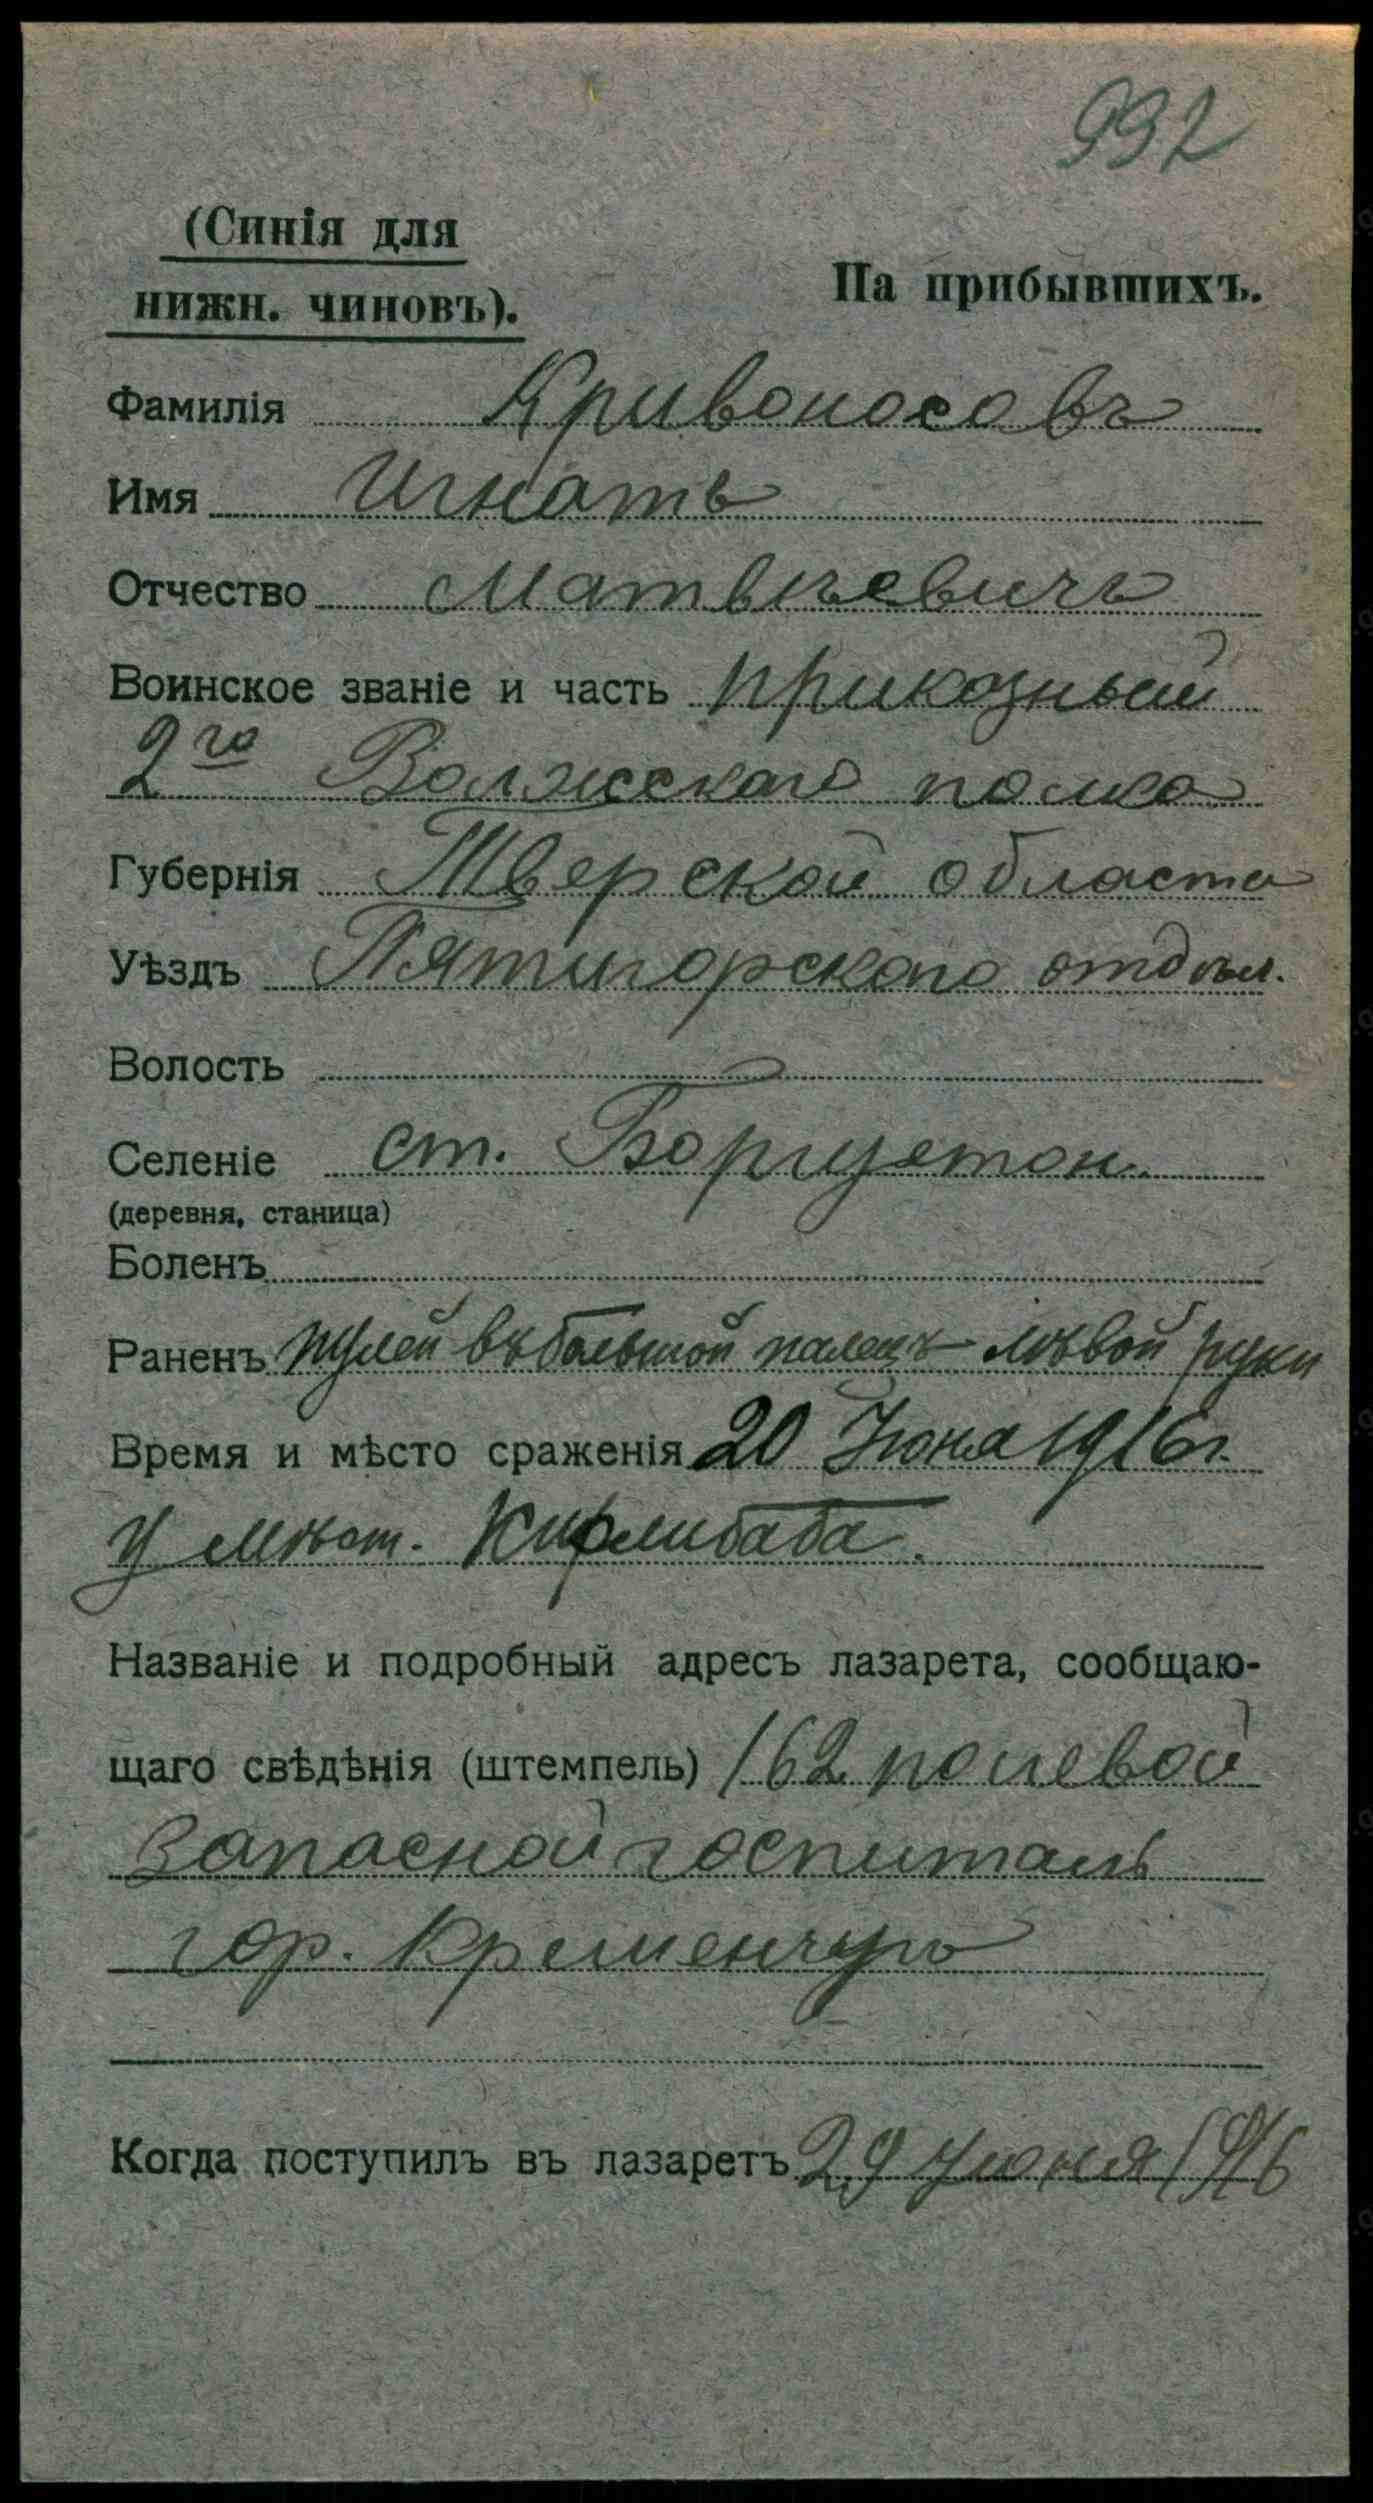 992
(Синія для
нижн. чиновъ).
На прибывшихъ.
Фамилія Кривоносовъ
Имя Игнатъ
Отчество Матвѣевичъ
Воинское званіе и часть приказный
2го Волжскаго полка
Губернія Тверской области
Уѣздъ Пятигорского отдѣл.
Волость
Селеніе ст. Боргустон.
(деревня, станица)
Боленъ
Раненъ пулей въ большой палецъ лѣвой руки
Время и мѣсто сраженія 20 Іюня 1916 г.
у мѣст. Кирлибаба.
Названіе и подробный адресъ лазарета, сообщаю-
щаго свѣдѣнія (штемпель) 162 полевой
запасной госпиталь
гор. Кременчугъ
Когда поступилъ въ лазаретъ 29 Июня 1916